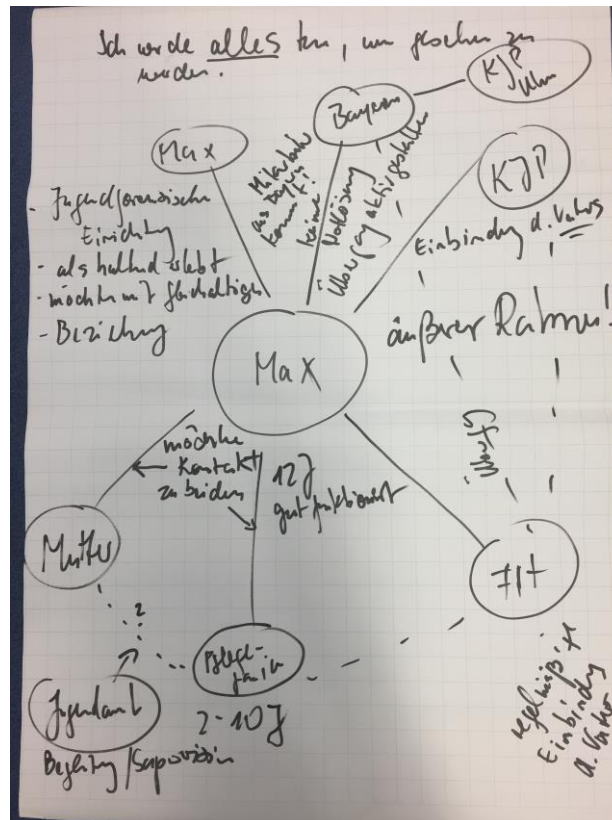 Ich werde alles tun, um gesehen zu
werden.
KJP
Ulm
Bayern
Max
KJP
Mitarbeiter
aus Bayern
kommt!
keine
Notlösung
Übergang aktiv gestalten
- Jugendforensische
Einrichtung
- als haltend erlebt
- möchte mit Gleichaltrigen
- Beziehung
Einbindung d. Vaters
äußerer Rahmen!
Max
möchte
Kontakt
zu beiden
12J
gut funktioniert
Mutter
?
Pflege-
familie
2-10J
Jugendamt
Begleitung/Supervision
regelmäßige
Einbindung
d. Vaters